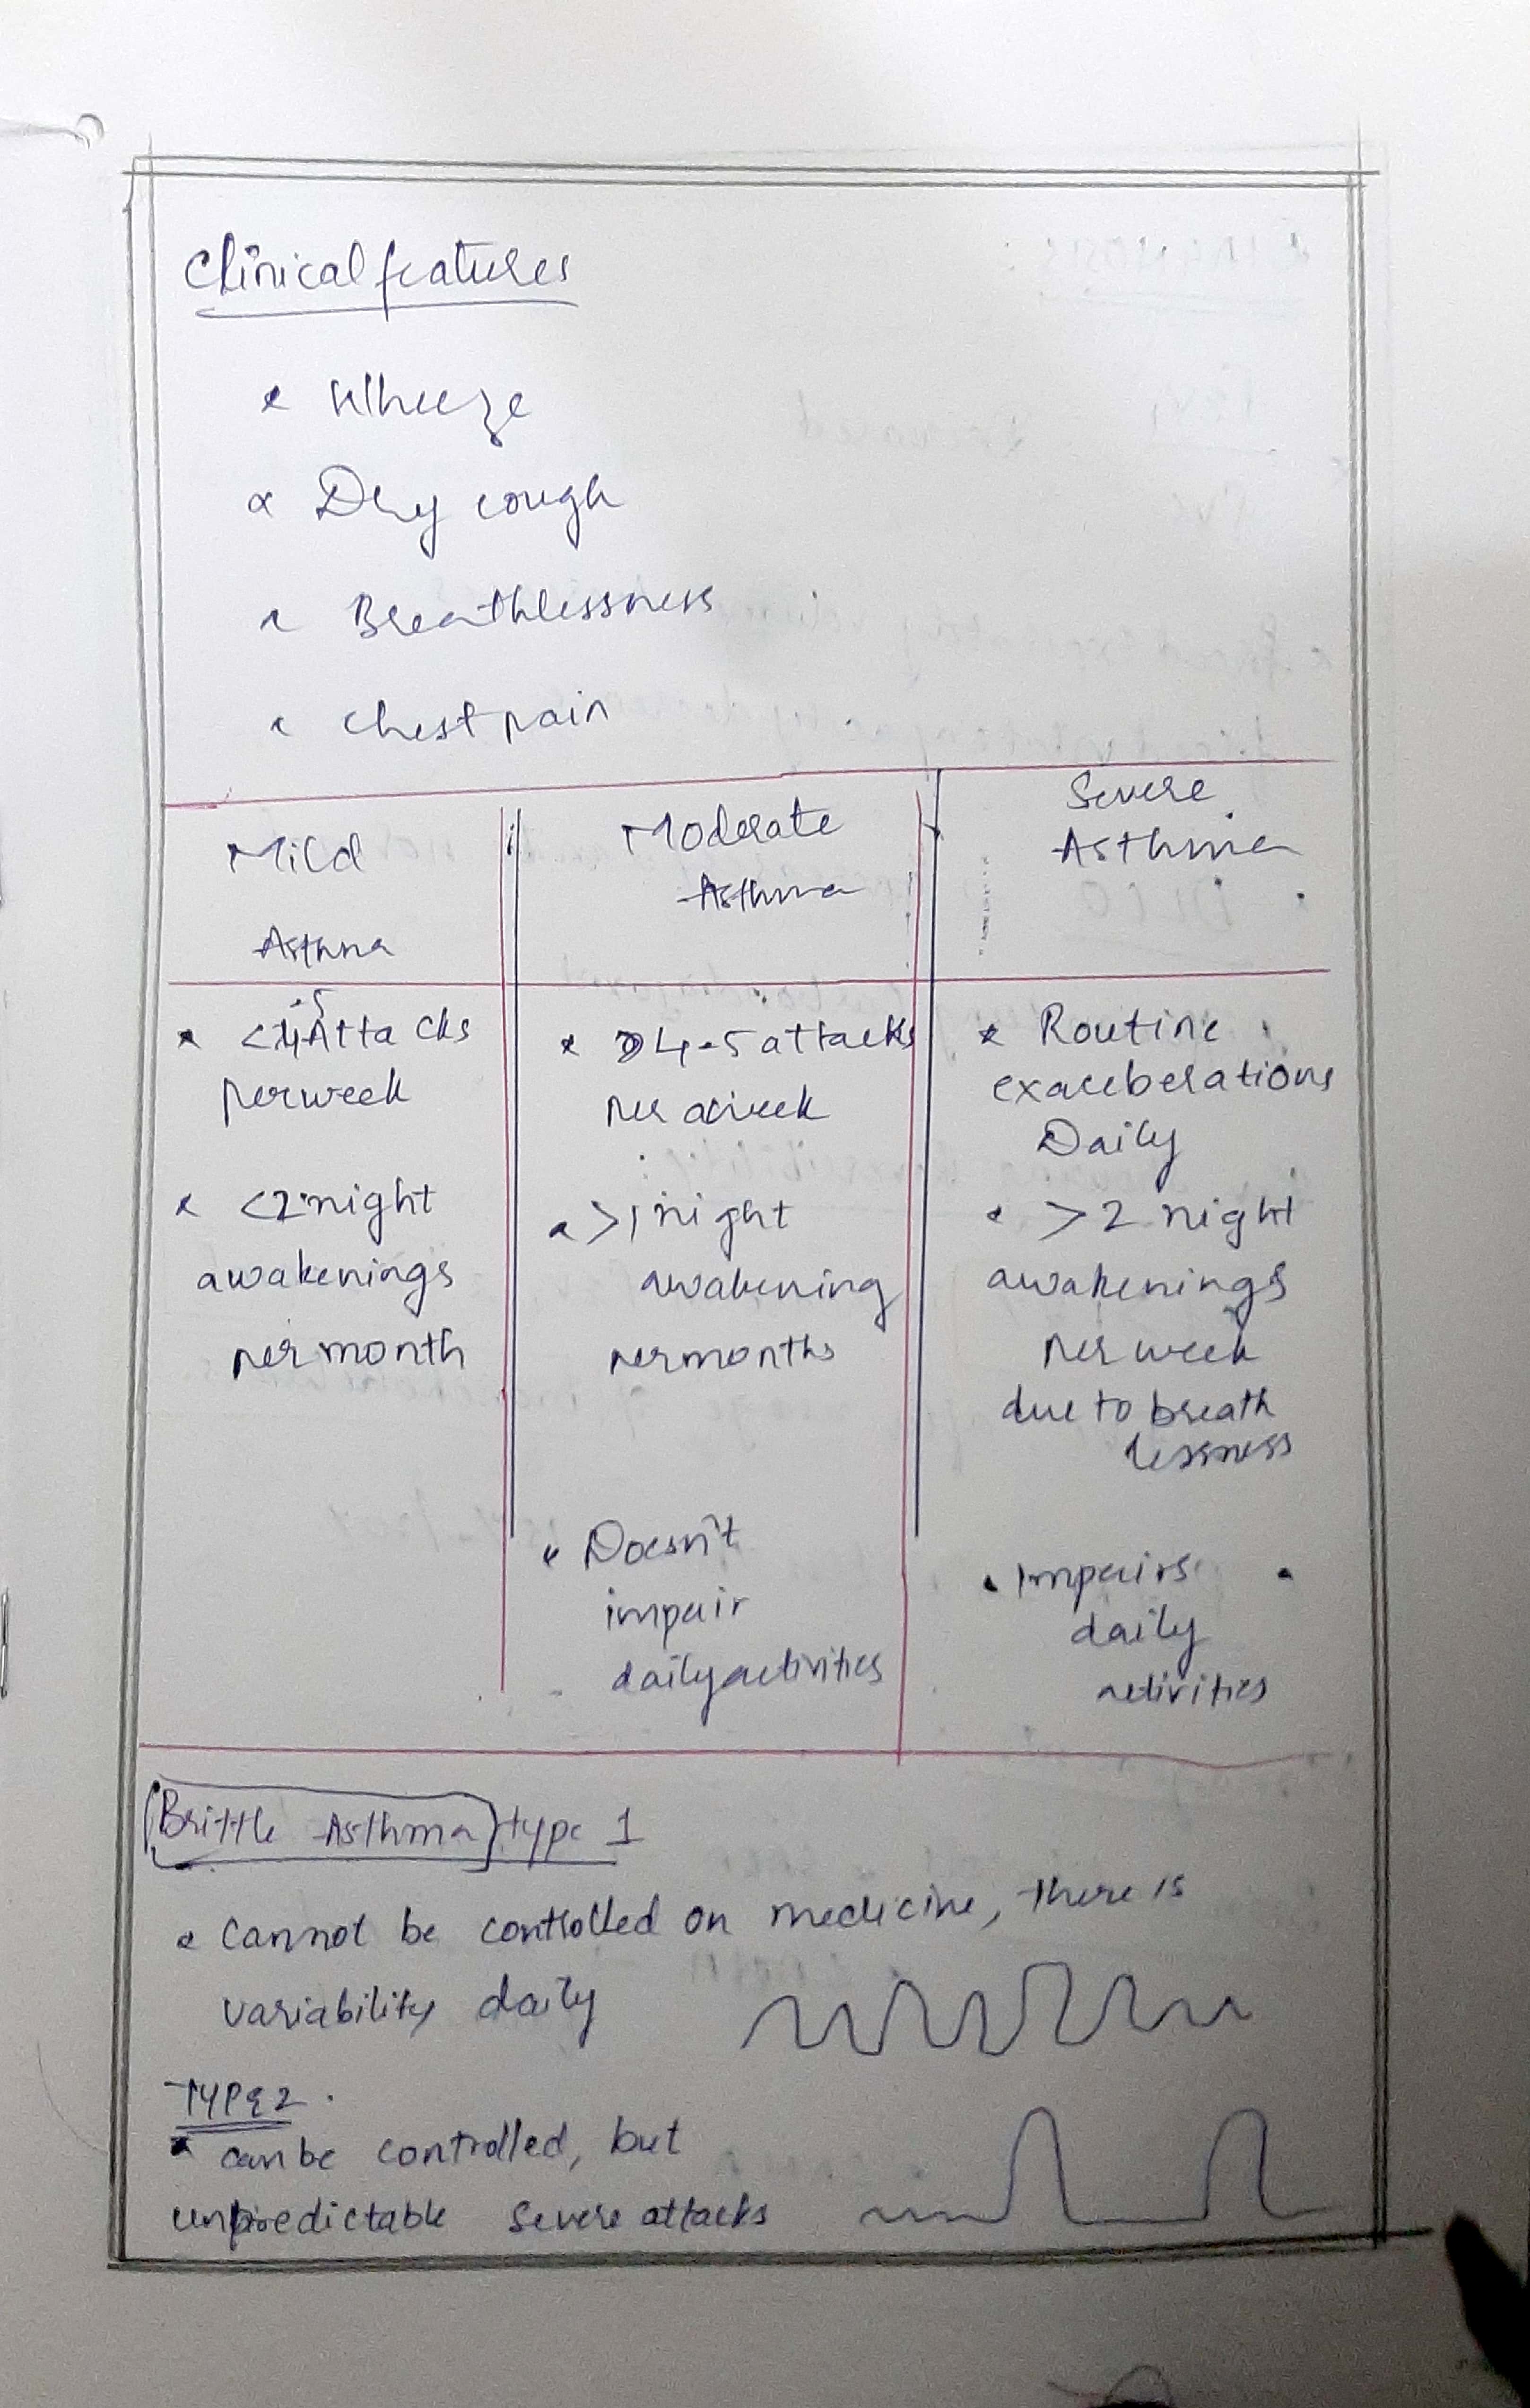 Clinical features
Wheeze
Dry cough
Breathlessness
Chest pain
Mild
Asthma
Moderate
Asthma
Severe
Asthma
Attacks
per week
<2 night
awakenings
per month
4-5 attacks
per a week
>1 night
awakening
per months
Doesn't
impair
daily activities
Routine
exaceberations
Daily
>2 night
awakenings
per week
due to breath
lessness
Impairs
daily
activities
Brittle Asthma type 1
Cannot be controlled on medicine, there is
variability daily
TYPE 2
can be controlled, but
unpredictable severe attacks